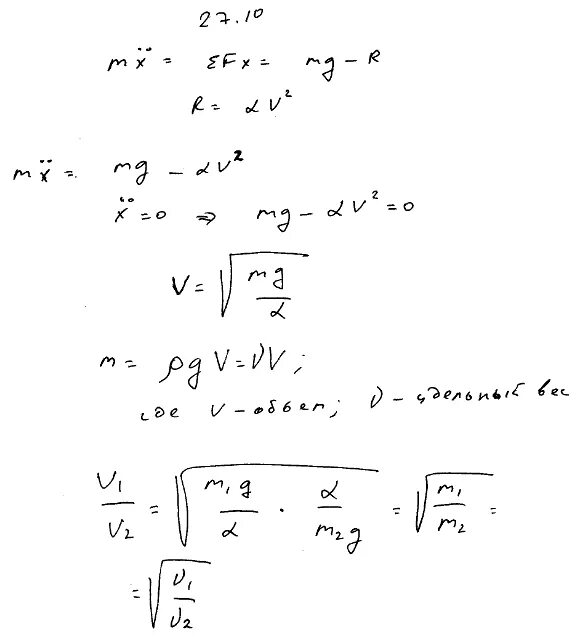 27.10
mẍ = ΣFx = mg - R
R = αV²
mẍ = mg - αV²
ẍ = 0 ⇒ mg - αV² = 0
V = √(mg/α)
m = ρgV = νV;
где V - объем; ν - удельный вес
V₁/V₂ = √(m₁g/α · α/m₂g) = √(m₁/m₂) =
= √(ν₁/ν₂)